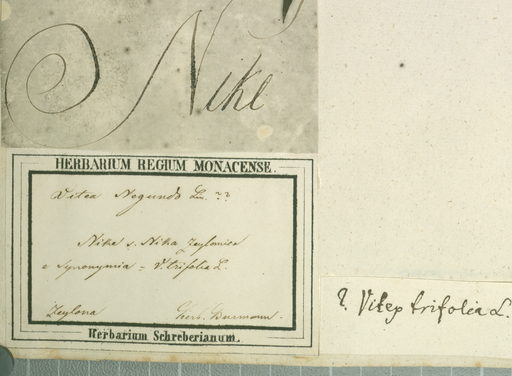 Nike
HERBARIUM REGIUM MONACENSE.
Vitex Negundo Lin. ??
Nika s. Nika Zeylonica
e Synonymia = V. trifolia L.
Zeylona Herb. Burmann.
Herbarium Schreberianum.
? Vitex trifolia L.